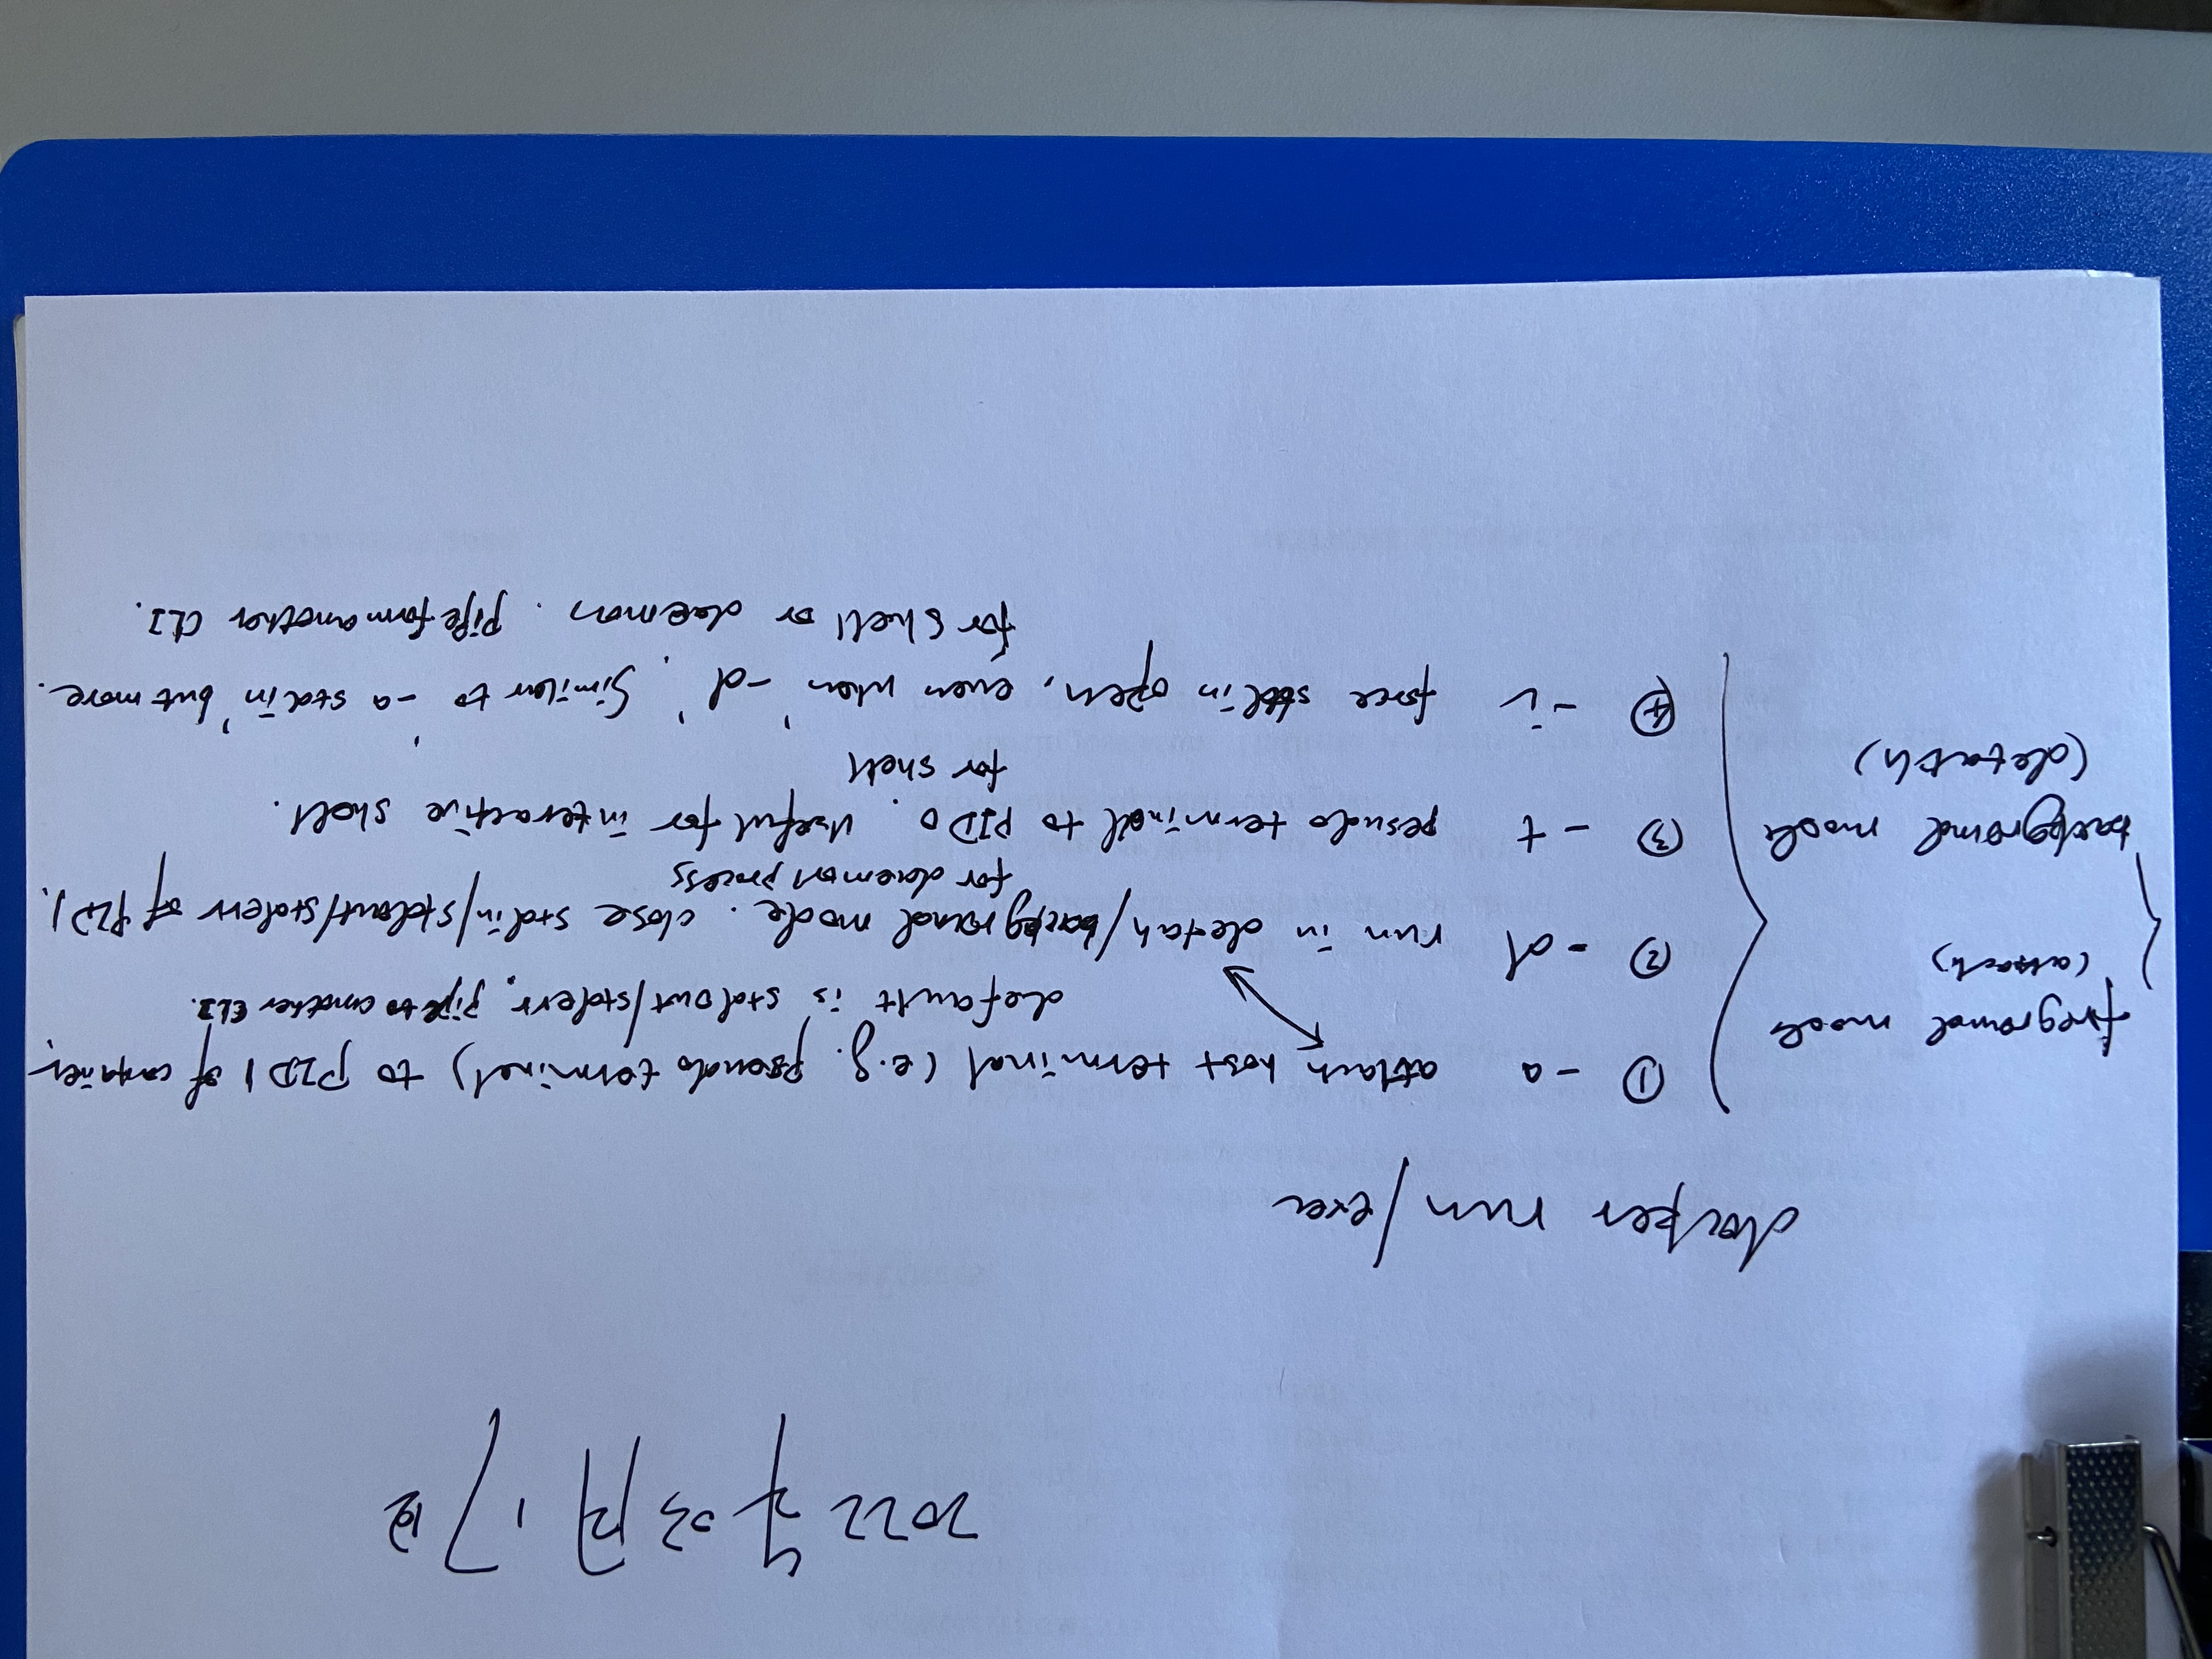 2022年3月17日
docker run / exec
foreground mode
(attach)
background mode
(detach)
① -a attach host terminal (e.g. pseudo terminal) to PID 1 of container,
default is stdout/stderr, pipe to another CLI.
② -d run in detah/background mode. close stdin/stdout/stderr of PID 1.
for daemon process
③ -t pesudo terminal to PID 0. Useful for interactive shell.
for shell
④ -i force stdin open, even when '-d'. Similar to '-a stdin' but more.
for shell or daemon. pipe form another CLI.